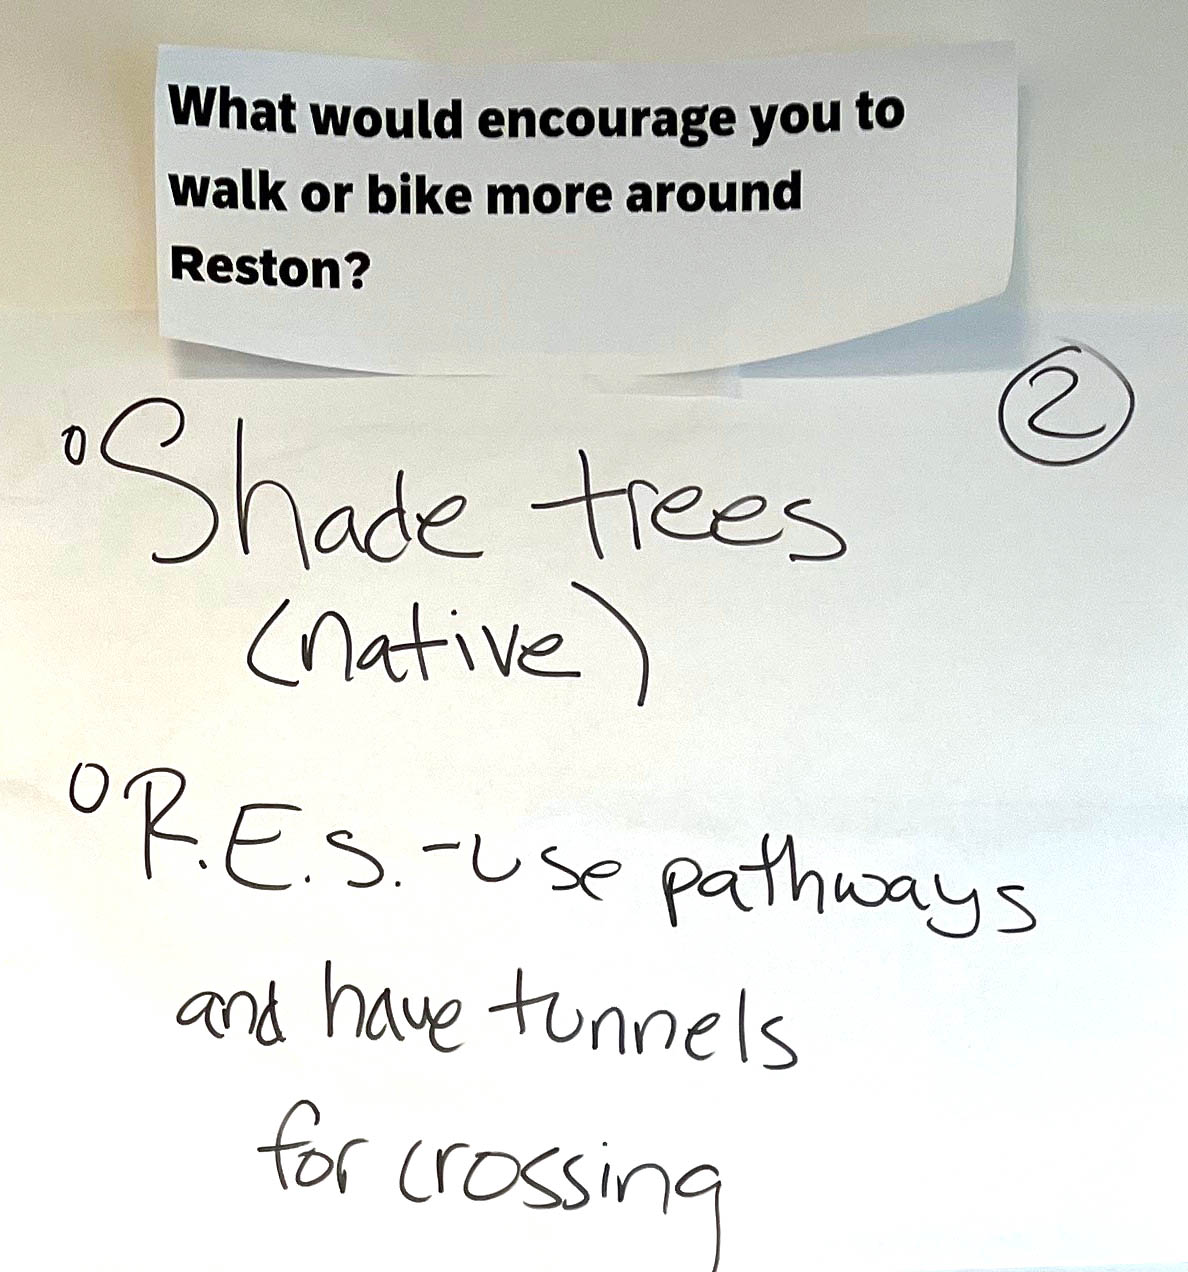 What would encourage you to
walk or bike more around
Reston?
2
Shade trees
(native)
R.E.S. - use pathways
and have tunnels
for crossing